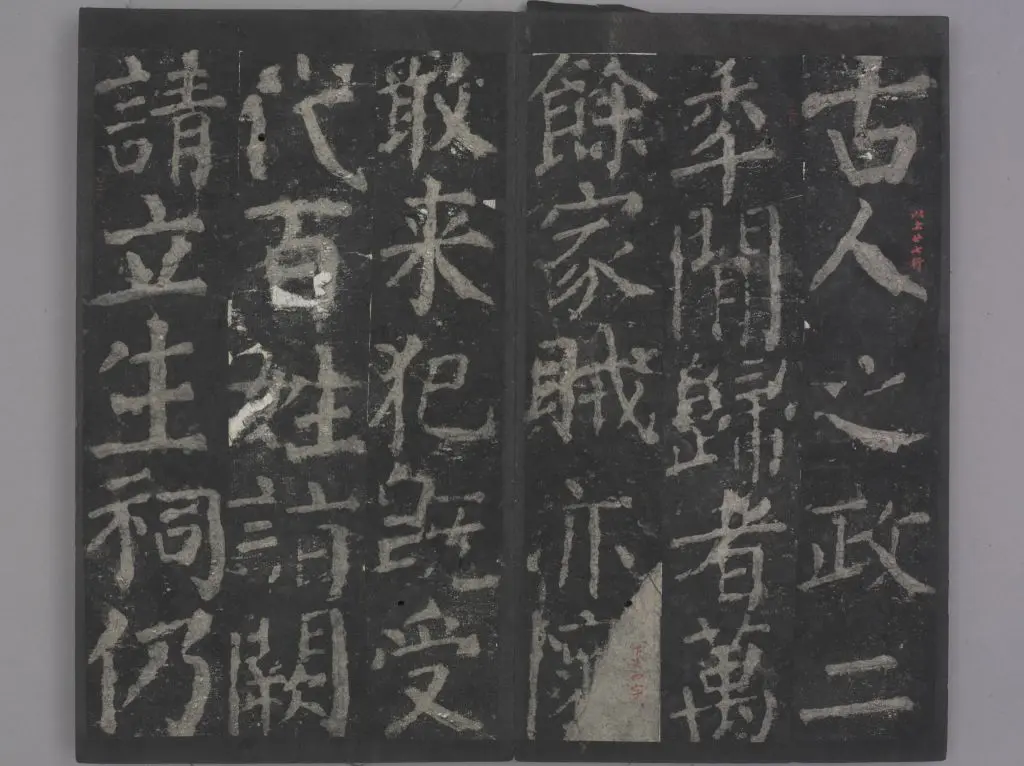 古人之政二
年閒歸者萬
餘家賊亦懷
敢来犯既受
代百姓詣闕
請立生祠仍